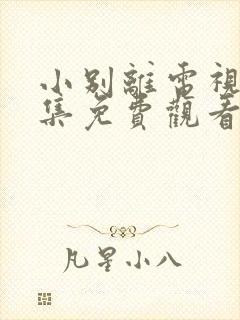 小别離電視
集免費觀看
凡星小八